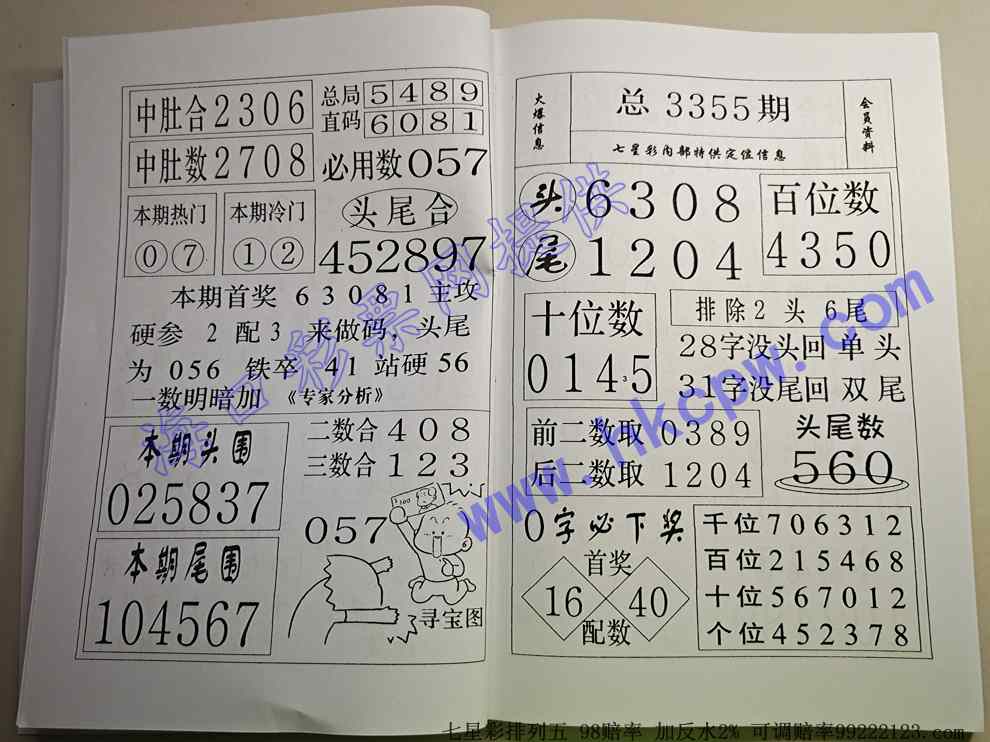 中肚合2306
总局 5489
直码 6081
中肚数2708
必用数057
本期热门
07
本期冷门
12
头尾合
452897
本期首奖 63081主攻
硬参 2 配3 来做码，头尾
为 056 铁卒 41站硬56
一数明暗加 《专家分析》
本期头围
025837
二数合408
三数合123
本期尾围
104567
057
100
寻宝图
火爆信息
总 3355期
七星彩内部特供定位信息
会员资料
头6308
尾1204
百位数
4350
十位数
01435
排除2 头 6尾
28字没头回 单 头
31字没尾回 双 尾
前二数取 0389
后二数取 1204
头尾数
560
0字必下奖
首奖
16 40
配数
千位706312
百位215468
十位567012
个位452378
海口彩票网提供
www.hkcpw.com
七星彩排列五 98赔率 加反水2% 可调赔率99222123.com